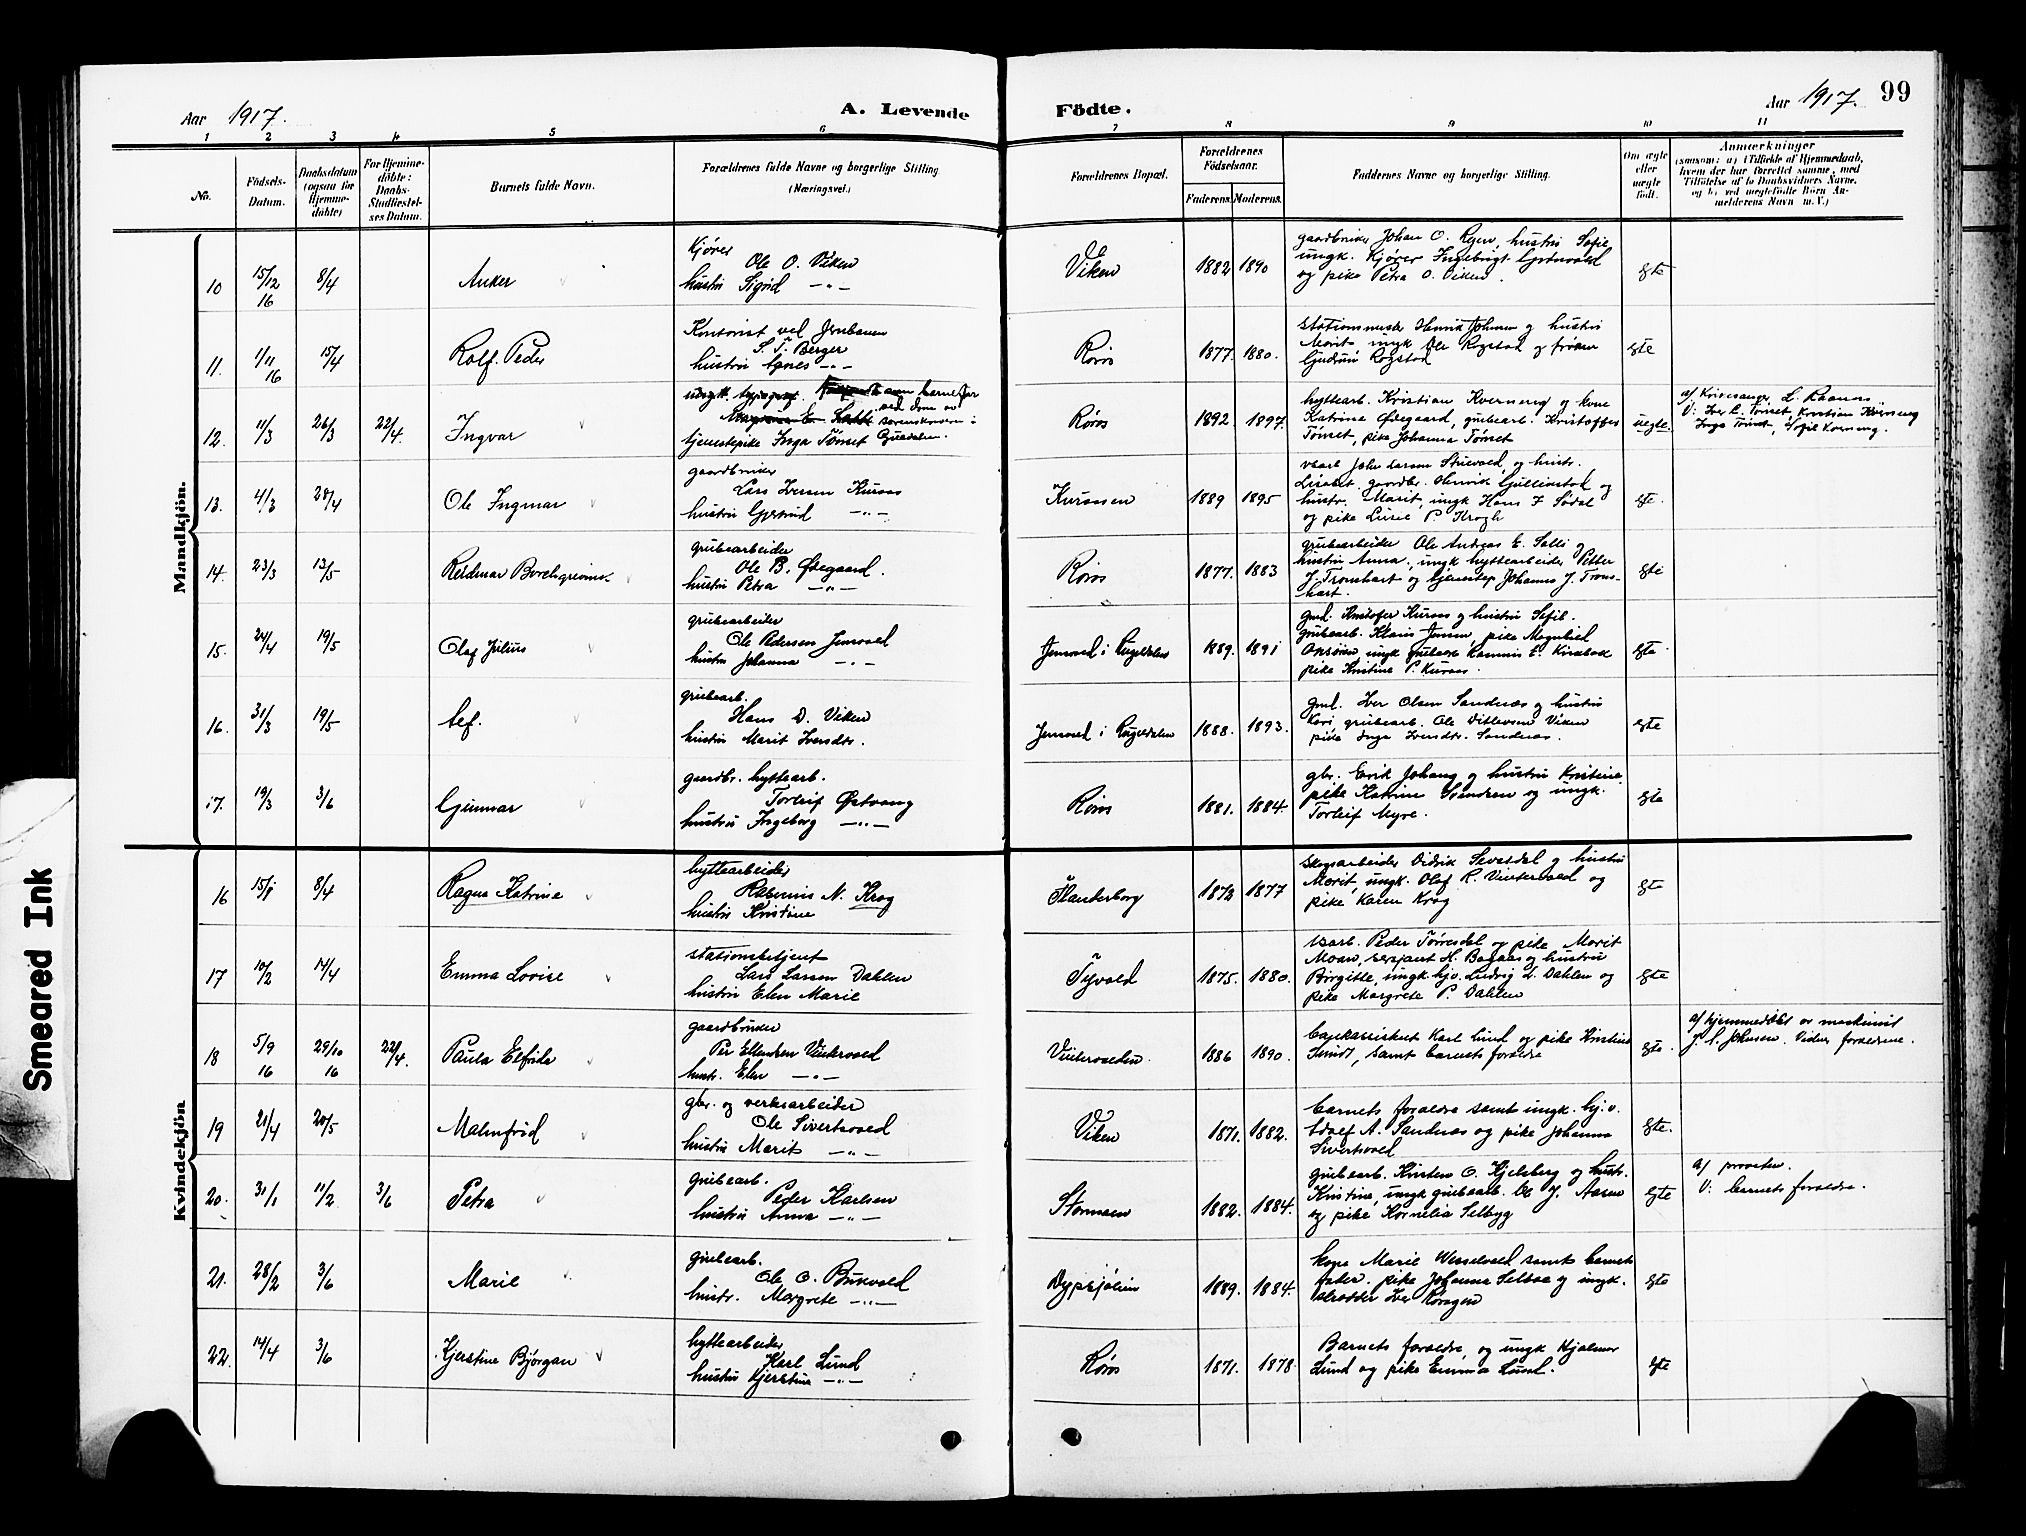 Aar 1917.
A. Levende
Födte.
Aar 1917. 99
1 2 3 4 5 6 7 8 9 10 11
No.
Födsels-
Datum.
Daabsdatum
(ogsaa for
Hjemme-
döbte)
For Hjemme-
döbte:
Daabs-
Stadfæstel-
ses Datum.
Barnets fulde Navn.
Forældrenes fulde Navne og borgerlige Stilling
(Næringsvei.)
Forældrenes Bopæl.
Forældrenes
Födselsaar.
Faderens. Moderens.
Faddernes Navne og borgerlige Stilling.
Om ægte
eller
uægte
födt.
Anmærkninger
(saasom: a) i Tilfælde af Hjemmedaab,
hvem der har forrettet samme, med
Tilföielse af to Daabsvidners Navne,
og b) ved uægtefödte Börn An-
melderens Navn m. V.)
Mandkjön.
10 15/12 16 8/4 Anker
Kjører
Ole O. Viken
hustru Sigrid -"-
Viken 1882 1890
gaardbruker Johan O. Rgen, hustru Sofie,
ungk. Kjører Ingebrigt
og pike Petra O. Viken.
egte
11. 1/11 16 15/4 Rolf Peder
Kontorist ved Jernbanen
S. T. Berger
hustru Agnes -"-
Røros 1877. 1880.
stationsmester Henrik Johnsen og hustru
Marit, ungk Ole Rogstad og frøken
Gudrun Rogstad
egte
12. 11/3 26/3 22/4. Ingvar
tjenestepike Inga Tömset
Røros 1892 1897.
hyttearb. Kristian Kverneng og kone
Katrine Ødegaard, grubearb. Kristoffer
Tömset, pike Johanna Tömset
uegte.
V: Iver E. Tømset, Kristian Kverneng
Inga Tömset, Sofie Kverneng.
13. 4/3 28/4 Ole Ingmar
gaardbruker
Lars Iversen Kuraas
hustru Gjertrud -"-
Kuraasen 1889 1895
Lisabet, gaardbr. Henrik Gullikstad og
hustr. Marit, ungk Hans F Sødal
og pike Lusie P. Krogh
egte.
14. 23/3 13/5 Reidmar Borchgrevink
grubearbeider
Ole B. Ødegaard.
hustru Petra -"-
Røros 1877. 1883
grubearbeider Ole Andreas E. Galli og
hustru Anna, ungk hyttearbeider Petter
J. Tronshart og tjenestep Johanna J. Trons-
hart.
egte
15. 24/4 19/5 Olaf Julius
grubearbeider
Ole Pedersen Jensvold
hustru Johanna -"-
Jensvold i Rugeldalen 1889. 1891
gml. Kristofer Kuraas og hustru Sofie.
grubearb. Klaus Jensen, pike Magnhild
pike Kristine P. Kuraas.
egte
16. 31/3 19/5 Leif.
grubearb.
Hans D. Viken
hustru Marit Iversdtr.
Jensvold i Rugeldalen 1888. 1893.
gml. Iver Olsen Sandnæs og hustru
Kari grubearb. Ole Ditlevsen Viken
pike Inga Iversdtr. Sandnæs.
egte
17. 19/3 3/6 Gunnar
gaardbr. hyttearb.
Torleif Østvang
hustru Ingeborg -"-
Røros 1881. 1884.
gbr. Erik Johaug og hustru Kristine
pike Katrine Svendsen og ungk.
Torleif Myre.
egte
Kvindekjön
16 15/1 8/4 Ragna Katrine
hyttearbeider
Rasmus N. Krog
hustru Kristine
Flanderborg 1872 1877
skogsarbeider Didrik Sevatdal og hustru
Marit, ungk. Olaf R. Vintervold og
pike Karen Krog
egte
17 10/2 14/4 Emma Lovise
stationsbetjent
Lars Larsen Dahlen
hustru Elen Marie
Tyvold 1875. 1880.
vbarb. Peder Tørresdal og pike Marit
Moan, sersjant H. Bagaas og hustru
Birgitte, ungk. hjv. Ludvig L. Dahlen og
pike Margrete P. Dahlen
egte
18 5/9 16 29/10 16 22/4. Paula Elfride
gaardbruker
Per Ellendsen Vintervold
hustr. Elen -"-
Vintervolden. 1886 1890.
bankassistent Karl Lund og pike Kristine
Smidt, samt barnets foreldre
egte.
a/ hjemmedøbt av maskinist
J. S. Johnsen. Vidner foreldrene.
19 21/4 20/5 Malmfrid
gbr. og verksarbeider
Ole Sivertsvold
hustru Marit -"-
Viken 1871. 1882.
barnets foreldre samt ungk. hj. v.
Adolf A. Sandnæs og pike Johanna
Sivertsvold
egte.
20. 31/1 11/2 3/6 Petra
grubearb.
Peder Karlsen
hustru Anna -"-
Stormoen 1882. 1884.
grubearb. Kristen O. Hjelsberg og hustr.
Kristine, ungk grubearb. Ole J. Aasen
og pike Kornelia Selbyg
egte
a/ provsten.
V: barnets foreldre.
21. 28/2 3/6 Marie
grubearb.
Ole O. Bukvold
hustr. Margrete -"-
Dypsjølien 1889. 1884.
kone Marie Wesselvold samt barnets
fader. pike Johanna Selboe og ungk.
skrædder Iver Rørosgen
egte
22. 14/4 3/6 Kjerstine Bjørgan
hyttearbeider
Karl Lund
hustru Kjerstine -"-
Røros 1871. 1878
Barnets foreldre, og ungk Hjalmar
Lund og pike Emma Lund.
egte
Smeared Ink